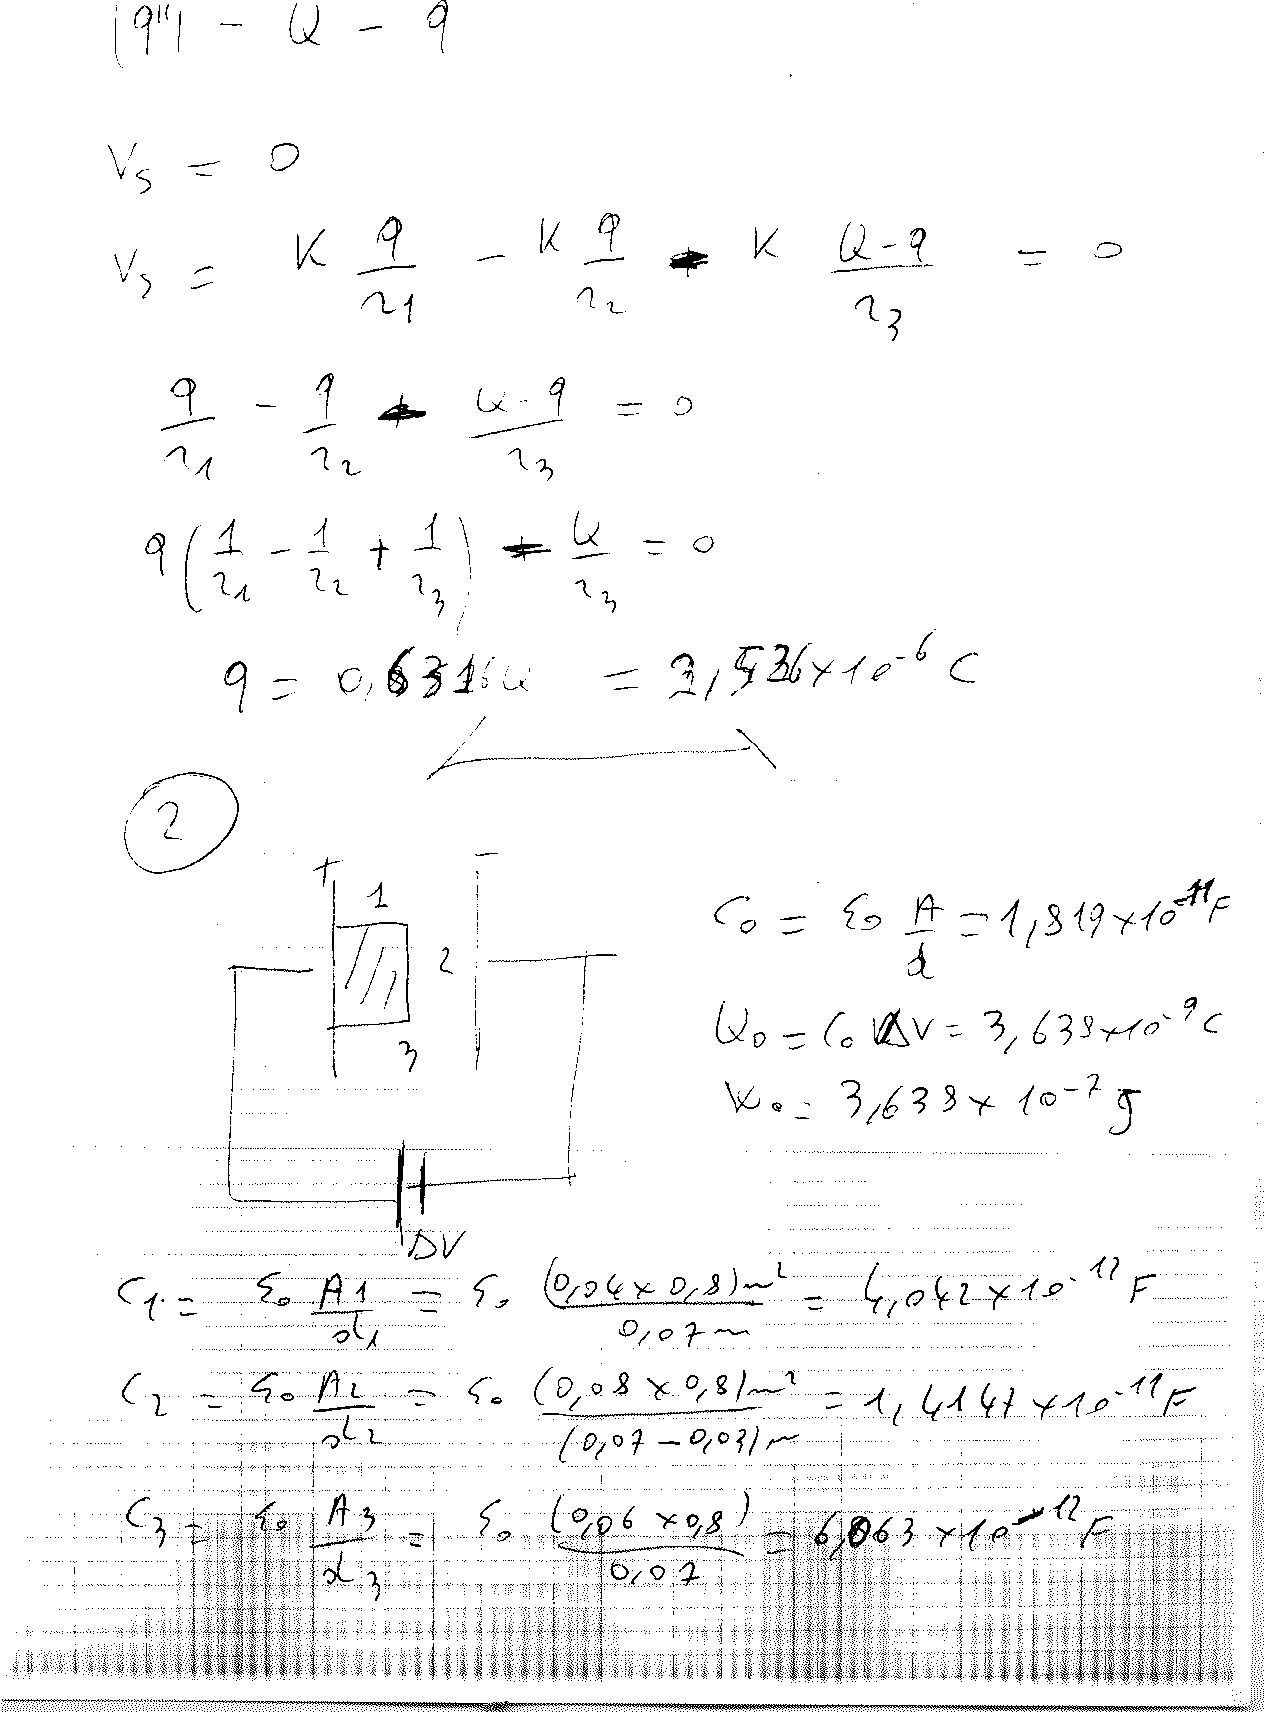 |q"| - Q - q
V_S = 0
V_S = K q/r1 - K q/r2 + K Q-q/r3 = 0
q/r1 - q/r2 + Q-q/r3 = 0
q (1/r1 - 1/r2 + 1/r3) + Q/r3 = 0
q =
2
+ -
1
2
3
ΔV
C0 = ε0 A/d = 1,819×10^-11 F
Q0 = C0 ΔV = 3,638×10^-9 C
= 3,638×10^-7 J
C1 = ε0 A1/d1 = ε0 (0,04×0,8)m²/0,07m = 4,042×10^-12 F
C2 = ε0 A2/d2 = ε0 (0,08×0,8)m²/(0,07-0,03)m = 1,4147×10^-11 F
C3 = ε0 A3/d3 = ε0 (0,06×0,8)/0,07 = 6,063×10^-12 F